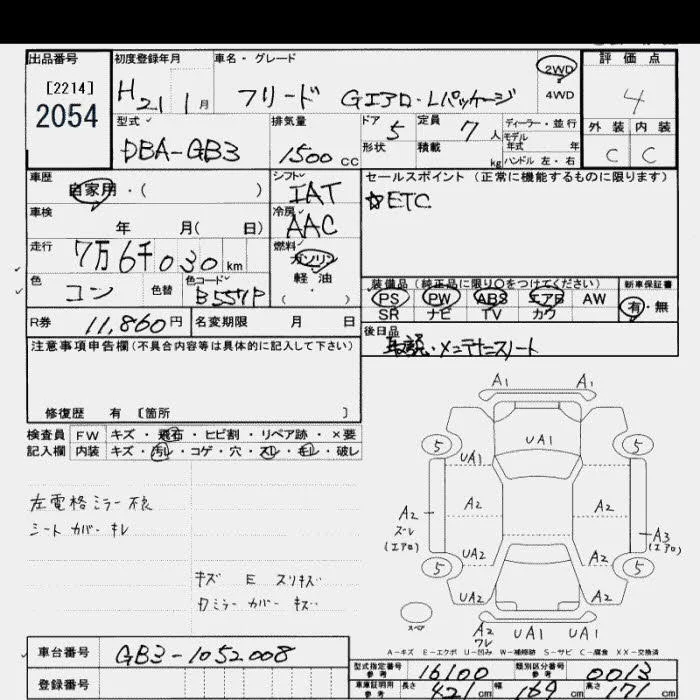 出品番号 初度登録年月 車名・グレード 評価点
[2214] 2054
H21 1月 フリード Gエアロ・Lパッケージ 2WD 4WD 4
型式 排気量 ドア 5 定員 7人 ディーラー・並行 外装 内装
DBA-GB3 1500cc 形状 積載 kg モデル年式 年 ハンドル 左・右 C C
車歴 自家用・( ) シフト IAT セールスポイント(正常に機能するものに限ります)
車検 年 月( 日) 冷房 AAC ☆ETC
走行 7万6千030km 燃料 ガソリン 軽油 ( ・ )
色 コン 色替 色コード B557P
装備品(純正品に限り○をつけてください) 新車保証書
PS PW ABS エアB AW 有・無
SR ナビ TV カワ
R券 11,860円 名変期限 月 日 後日品
取説・メンテナンスノート
注意事項申告欄(不具合内容等は具体的に記入して下さい)
修復歴 有 〔箇所 〕
検査員 FW キズ・飛石・ヒビ割・リペア跡・×要
記入欄 内装 キズ・汚レ・コゲ・穴・スレ・キレ・破レ
左電格ミラー不良
シートカバーキレ
キズ E スリキズ
カバー キズ
A1 A1
UA1
5 5
UA1
A2 A2 A2
ズレ
(エアロ)
A3
(エアロ)
UA2 A2
5 5
UA2 A2
スペア
A2 UA1 UA1
ワレ
A-キズ E-エクボ U-凹み W-補修跡 S-サビ C-腐食 XX-交換済
車台番号 GB3-1052008
型式指定番号 参考 16100 類別区分番号 参考 0013
登録番号 車庫証明用 参考 長さ 421cm 幅 169cm 高さ 171cm